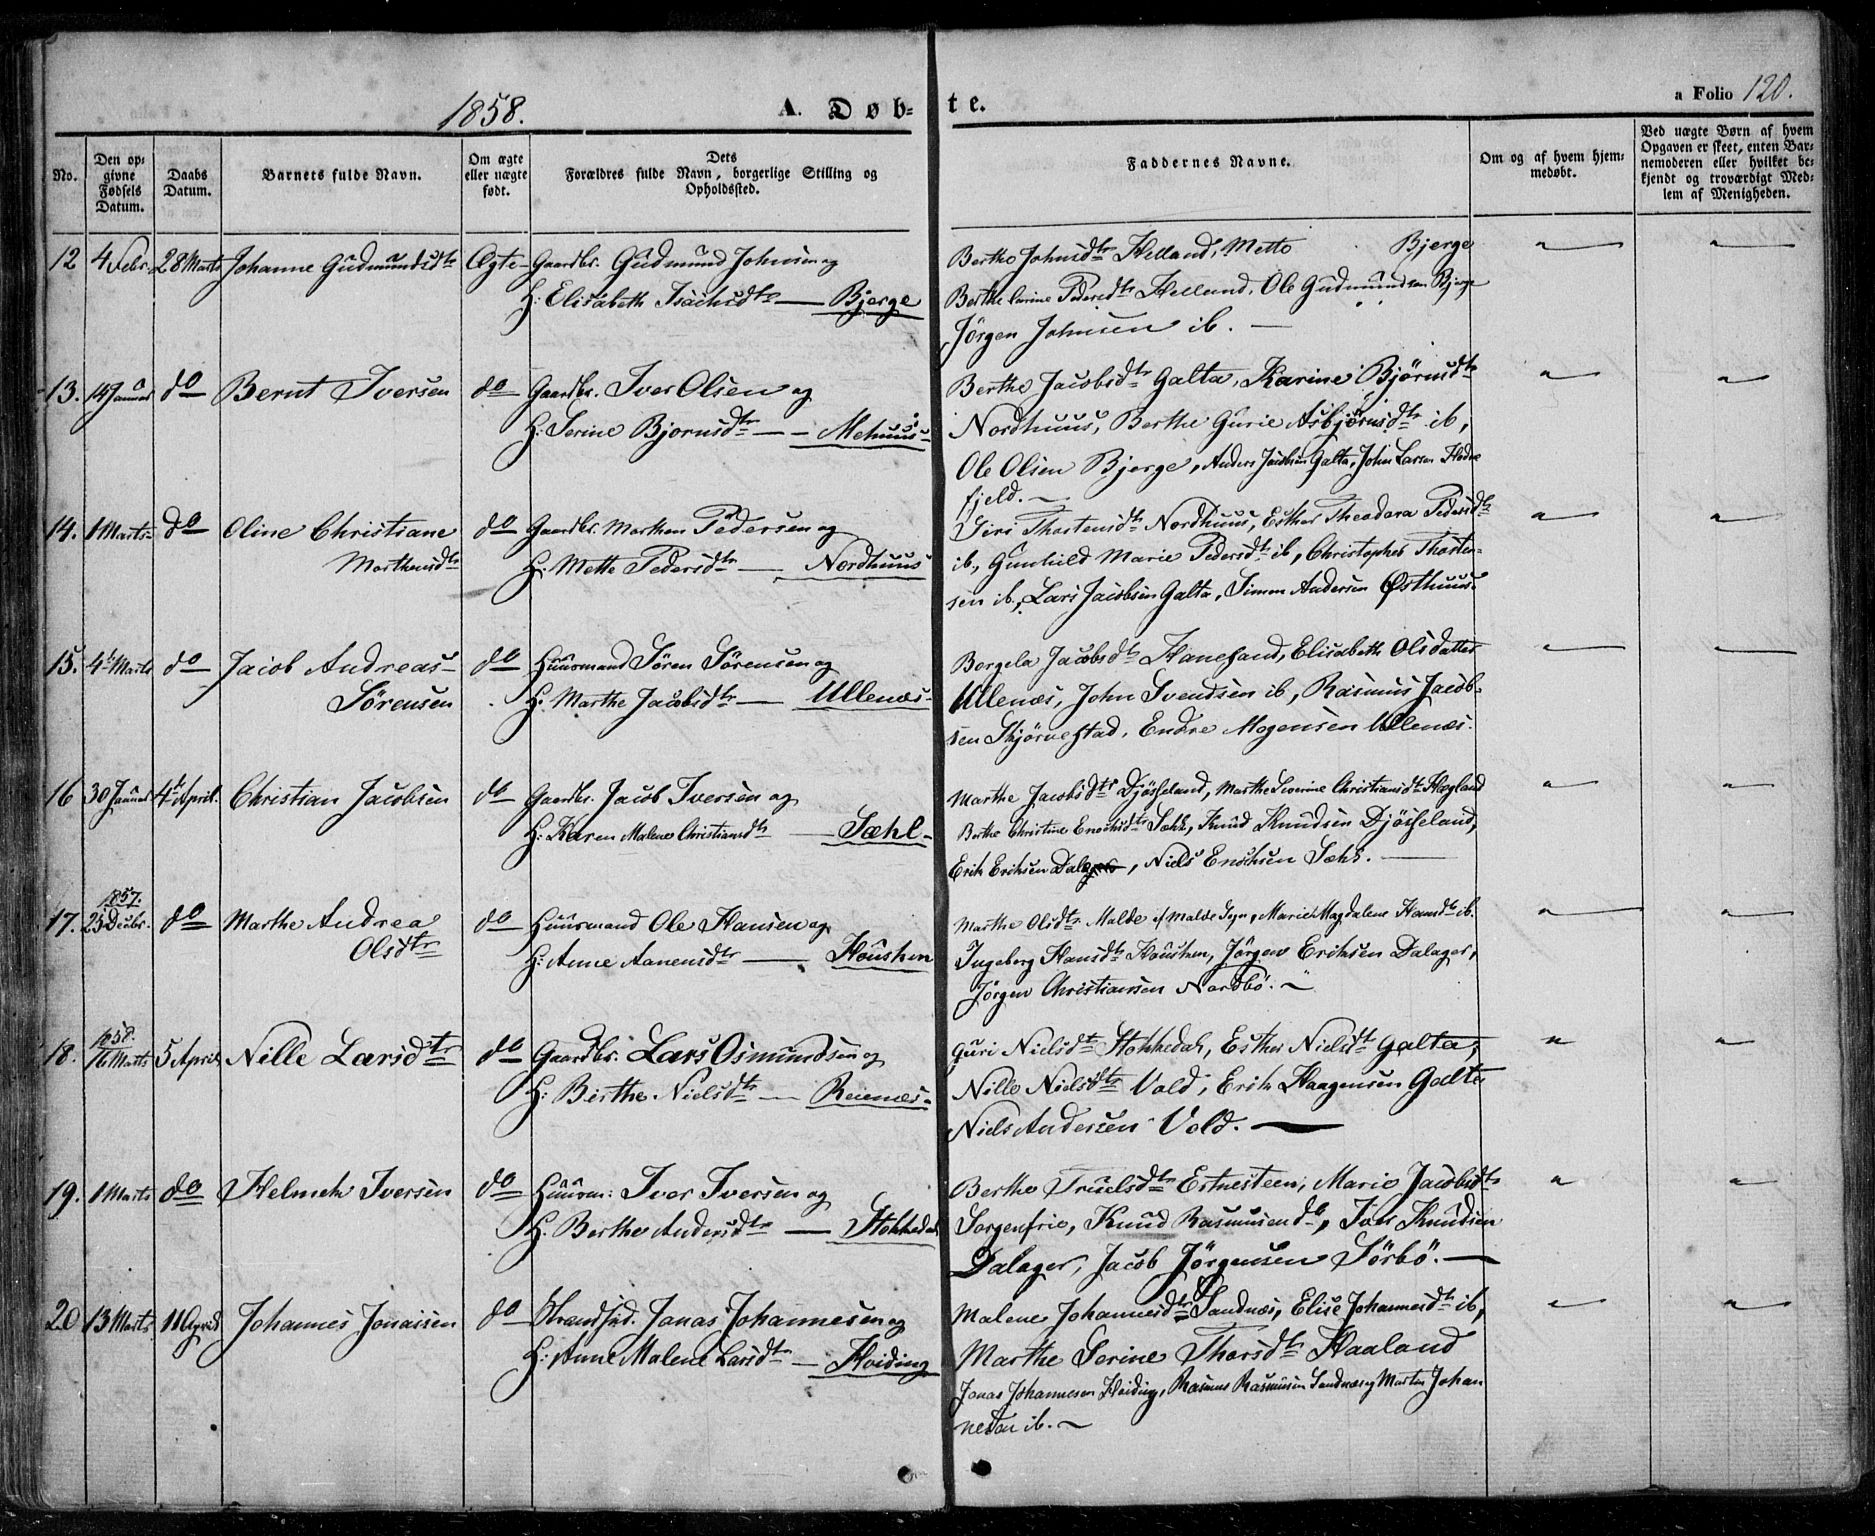 1858.
A. Døb-
te.
a Folio 120.
No.
Den op-
givne
Fødsels
Datum.
Daabs
Datum.
Barnets fulde Navn.
Om ægte
eller uægte
født.
Dets
Forældres fulde Navn, borgerlige Stilling og
Opholdssted.
Faddernes Navne.
Om og af hvem hjem-
medøbt.
Ved uægte Børn af hvem
Opgaven er skeet, enten Bar-
nemoderen eller hvilket be-
kjendt og troværdigt Med-
lem af Menigheden.
12 4 Febr. 28 Marts Johanne Gudmundsdtr Ægte Gaardbr. Gudmund Johnsen og
H. Elisabeth Isachsdtr — Bjerge
Berthe Johnsdtr Helland, Mette Bjerge
Berthe Carine Pedersdtr Helland, Ole Gudmundsen Bjerge
Jörgen Johnsen ib. —
13. 14 Januar do Bernt Iversen do Gaardbr. Iver Olsen og
H. Serine Bjornsdtr — Mehuus
Berthe Jacobsdtr Galta, Karine Bjørnsdtr
Nordhuus, Berthe Gurie Asbjørnsdtr ib,
Ole Olsen Bjerge, Anders Jacobsen Galta, John Larsen Hodne
fjeld. —
14. 1 Marts do Oline Christiane do Gaardbr. Morthen Pedersen og
Morthensdtr H. Mette Pedersdtr — Nordhuus
Siri Thostensdtr Nordhuus, Esther Theodora Pedersdtr
ib, Gunhild Marie Pedersdtr ib, Christopher Thosten-
sen ib, Lars Jacobsen Galta, Simon Andersen Østhuus.
15. 4de Marts do Jacob Andreas do Huusmand Søren Sörensen og
Sörensen H. Marthe Jacobsdtr — Ullenæs
Borgela Jacobsdtr Hanesand, Elisabeth Olsdatter
Ullenæs, John Svendsen ib, Rasmus Jacob-
sen Skjörvestad, Endre Mogensen Ullenæs.
16 30 Januar 4de April. Christian Jacobsen do Gaardbr. Jacob Iversen og
H. Karen Malene Christiansdtr — Sæhl
Marthe Jacobsdtr Djösseland, Marthe Severine Christiansdtr Hægland
Berthe Christine Enochsdtr Sæhl, Knud Knudsen Djösseland,
Erik Eriksen Dalager, Niels Enochsen Sæhl. —
1857.
17. 25 Decbr. do Marthe Andrea do Huusmand Ole Hansen og
Olsdtr H. Anne Aanensdtr — Housken
Marthe Olsdtr Malde Sogn, Marie Magdalene Hansdtr ib.
Ingeborg Hansdtr Houskem, Jørgen Eriksen Dalager,
Jörgen Christiansen Nordbö. —
1858.
18. 16 Marts 5 April Nille Larsdtr do Gaardbr. Lars Osmundsen og
H. Birthe Nielsdtr — Reienæs
Guri Nielsdtr Stokkedal, Esther Nielsdtr Galta,
Nille Nielsdtr Vold, Erik Haagensen Galta
Niels Andersen Vold. —
19. 1 Marts do Helmek Iversen do Huusm: Iver Iversen og
H. Berthe Andersdtr — Stokkedal
Berthe Truelsdtr Estnesteen, Marie Jacobsdtr
Sorgenfrie, Knud Rasmusen do, Iver Knudsen
Dalager, Jacob Jörgensen Sörbö. —
20 13 Marts 11 April Johannes Jonassen do Strandsid. Jonas Johannesen og
H. Anne Malene Larsdtr — Hviding
Malene Johannesdtr Sandnæs, Elise Johannesdtr ib,
Marthe Serine Thorsdtr Haaland
Jonas Johannesen Hviding, Rasmus Rasmusen Sandnæs og Martin Johan
nesen ib. —